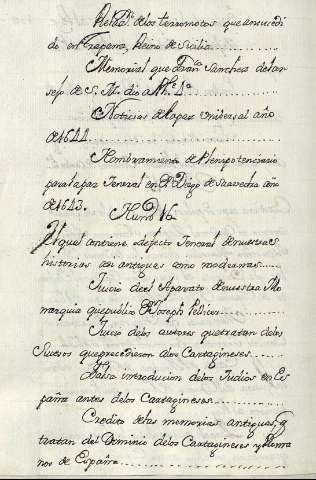 Relaz.n de los terremotos que an sucedi
do en Trapana, Reino de Sicilia
Memorial que Fran.co Sanchez del
sejo de S. M. dio a
Noticias de la paz Universal año
de 1644
Nombramiento de Plenipotenciario
para la paz Jeneral en D. Diego de Saavedra año
de 1643.
Num.o 16
El qual contiene defecto Jeneral de nuestras
historias asi antiguas como modernas
Juicio del Aparato de nuestra Mo
narquia que publico D. Joseph Pellicer
Juicio de los autores que tratan de los
Sucesos que precedieron a los Cartagineses
Falsa introducion de los Judios en Es
paña antes de los Cartagineses
Credito de las memorias antiguas, q
tratan del Dominio de los Cartagineses y Roma
nos de España